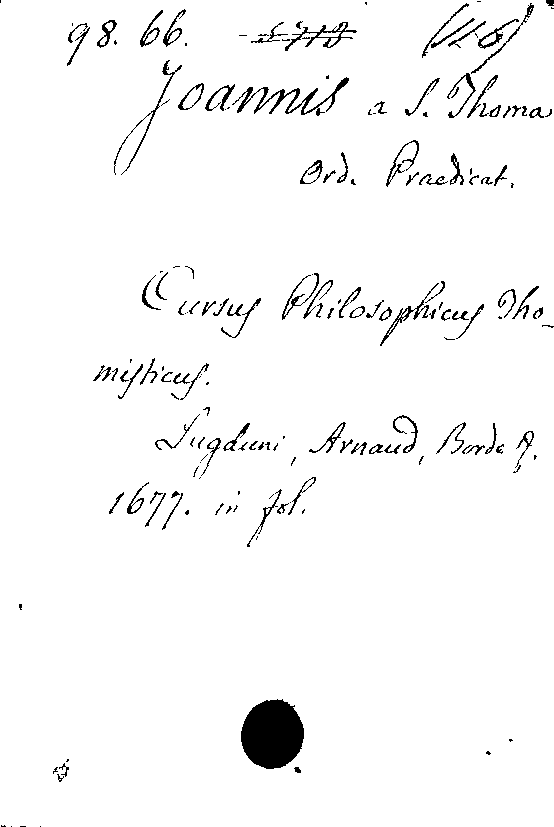 98. 66.
Joannis a S. Thoma
Ord. Praedicat.
Cursus Philosophicus Tho-
misticus.
Lugduni, Arnaud, Borde
1677. in fol.